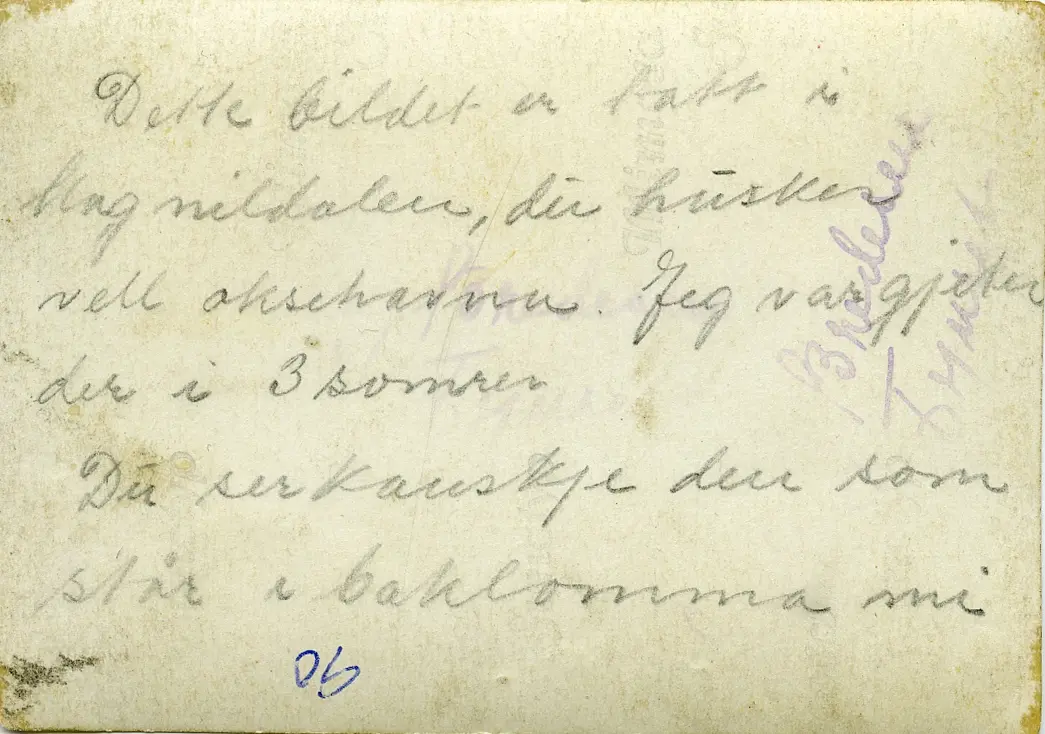 Dette bildet er tatt i
Magnildalen, du husker
vell oksehavna. Jeg var gjeter
der i 3 somrer
Du ser kanskje den som
står i baklomma mi
Bredesen
Tynset